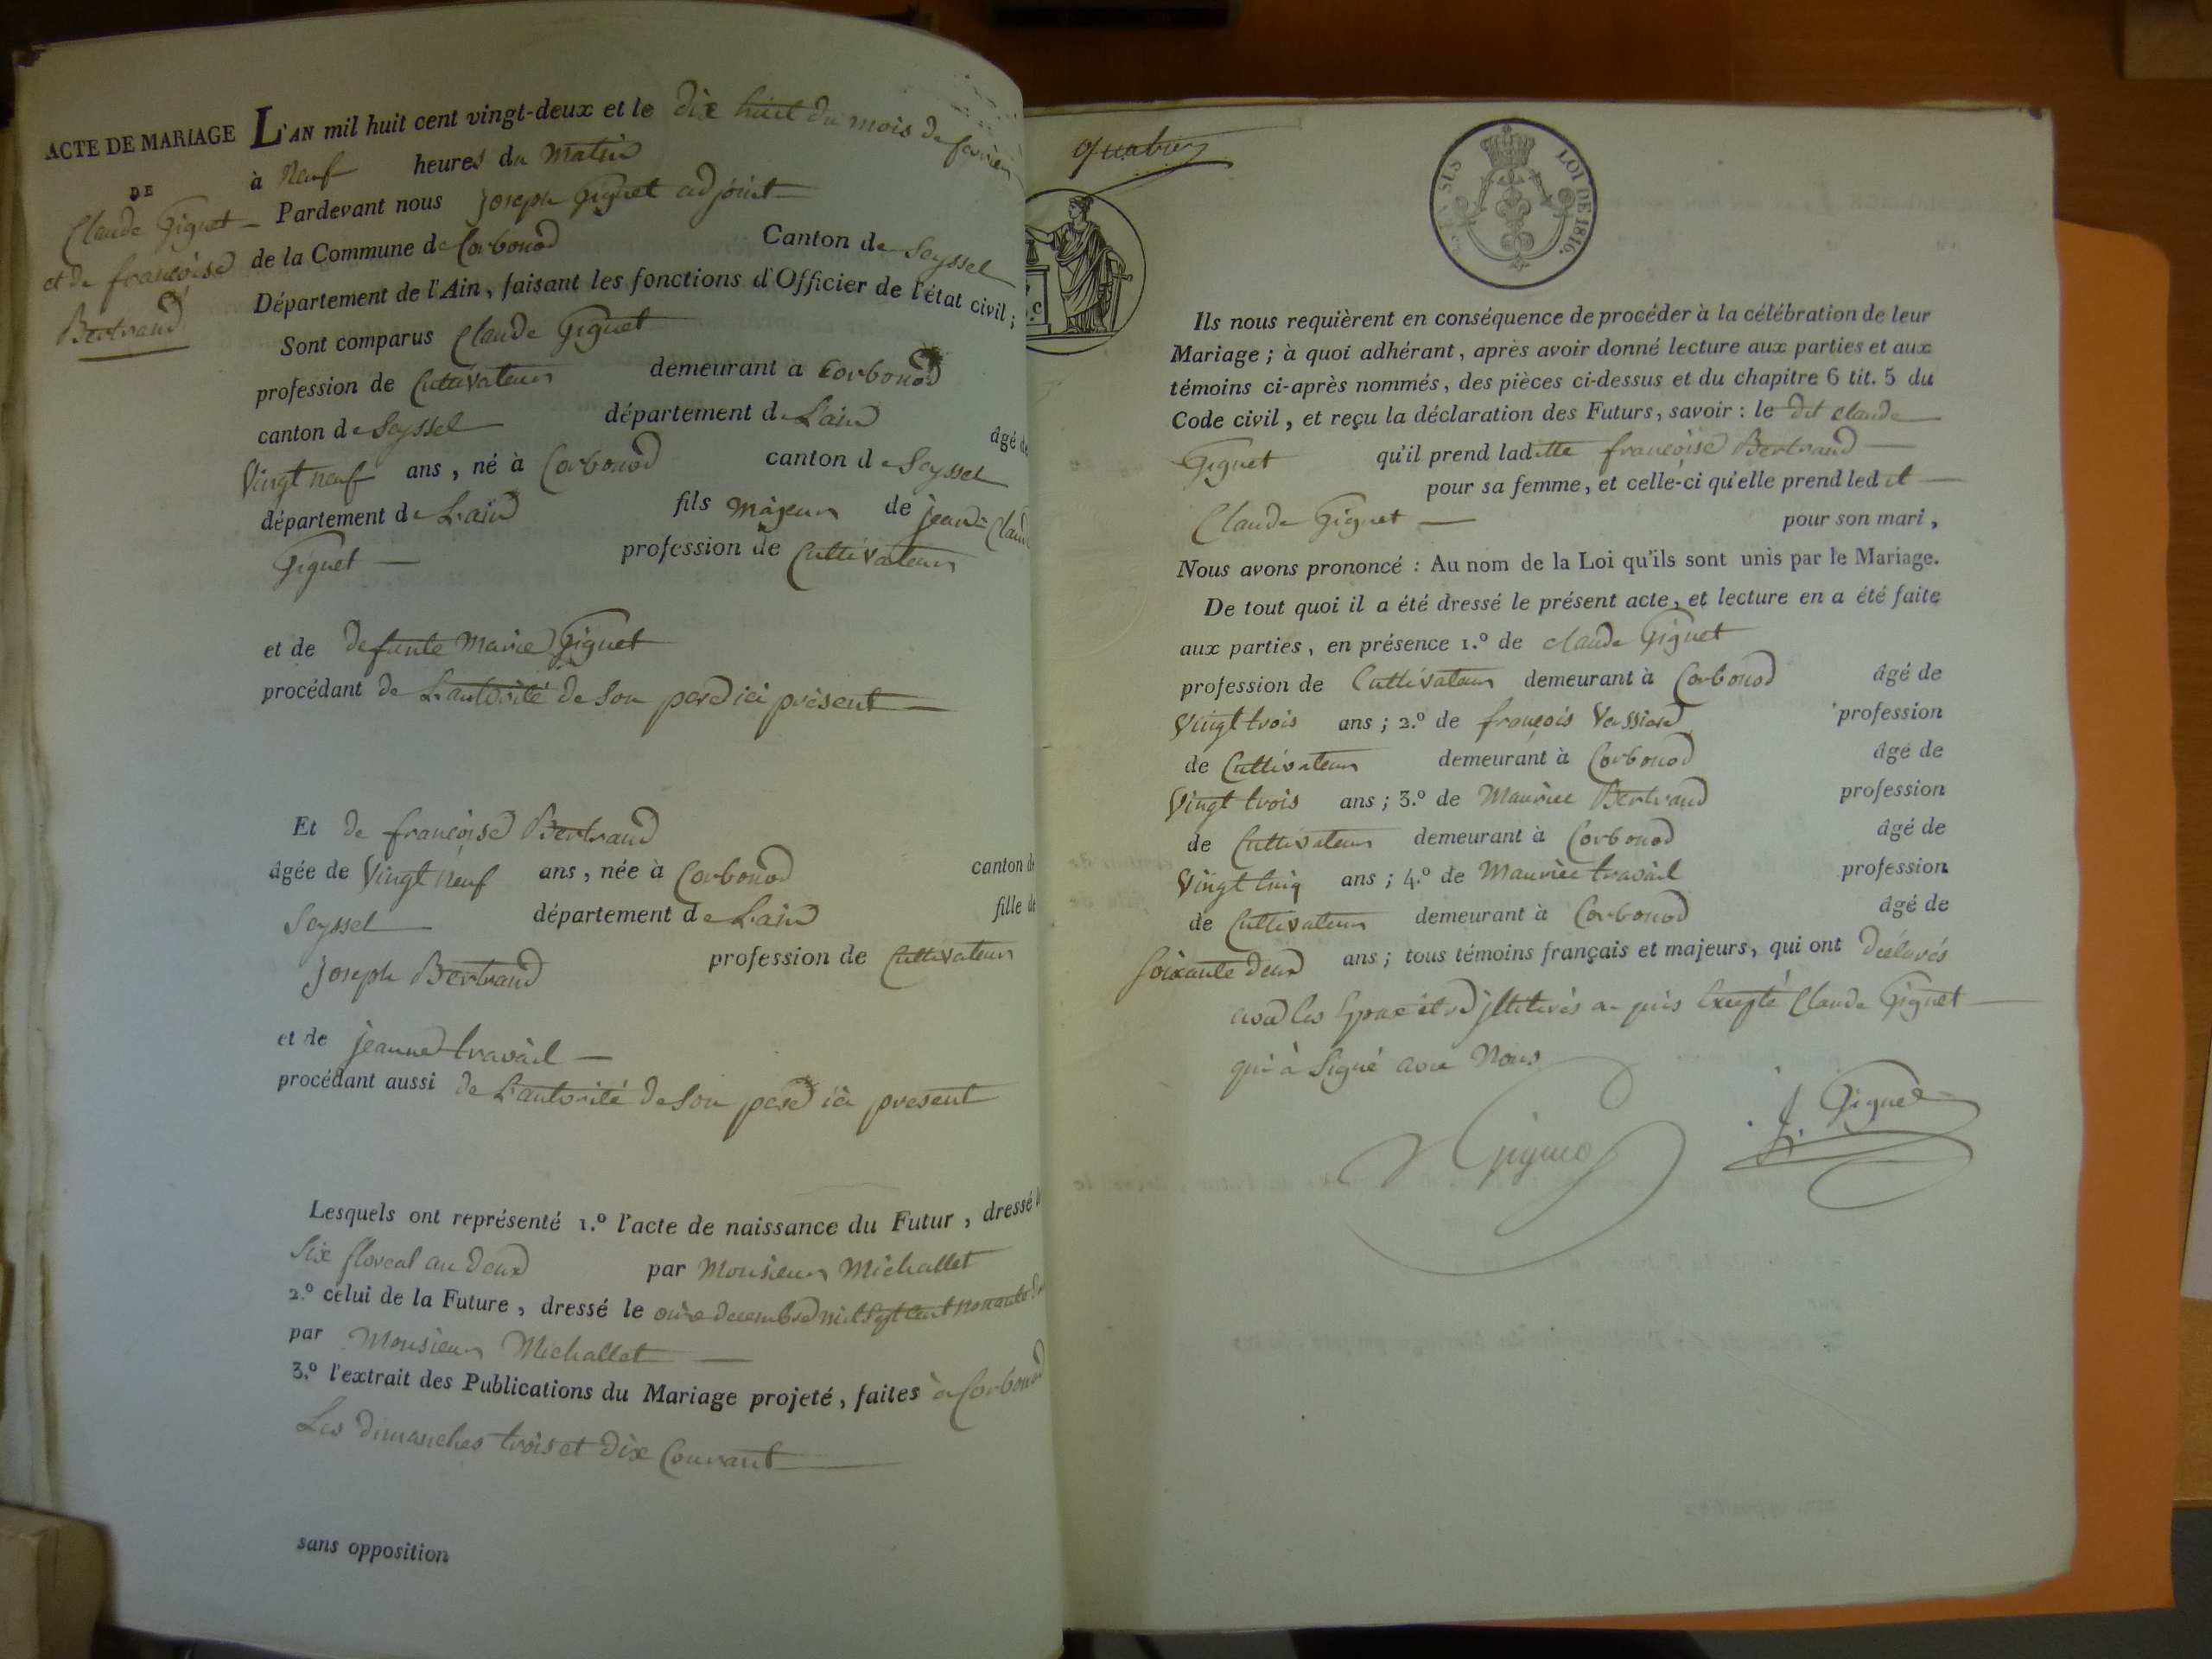 ACTE DE MARIAGE
DE
Claude Giguet
et de françoise
Bertrand
L'AN mil huit cent vingt-deux et le dix huit du mois de fevrier
à Neuf heures du Matin
Pardevant nous joseph Giguet adjoint
de la Commune de Corbonod Canton de Seyssel
Département de l'Ain, faisant les fonctions d'Officier de l'état civil;
Sont comparus Claude Giguet
profession de Cultivateur demeurant a Corbonod
canton de Seyssel département de L'ain âgé de
Vingt neuf ans, né à Corbonod canton de Seyssel
département de L'ain fils majeur de jean-Claude
Giguet profession de Cultivateur
et de defunte Marie Giguet
procédant de L'autorité de Son pere ici présent
Et de françoise Bertrand
âgée de Vingt neuf ans, née à Corbonod canton de
Seyssel département de L'ain fille de
joseph Bertrand profession de Cultivateur
et de jeanne travail
procédant aussi de L'autorité de Son pere ici present
Lesquels ont représenté 1.º l'acte de naissance du Futur, dressé le
Six floreal an deux par Monsieur Michallet
2.º celui de la Future, dressé le onze decembre mil Sept Cent nonante
par Monsieur Michallet
3.º l'extrait des Publications du Mariage projeté, faites à Corbonod
Les dimanches trois et dix Courant
sans opposition
quatre
LOI DE 1816.
Ils nous requièrent en conséquence de procéder à la célébration de leur
Mariage; à quoi adhérant, après avoir donné lecture aux parties et aux
témoins ci-après nommés, des pièces ci-dessus et du chapitre 6 tit. 5 du
Code civil, et reçu la déclaration des Futurs, savoir: le dit Claude
Giguet qu'il prend laditte françoise Bertrand
pour sa femme, et celle-ci qu'elle prend ledit
Claude Giguet pour son mari,
Nous avons prononcé: Au nom de la Loi qu'ils sont unis par le Mariage.
De tout quoi il a été dressé le présent acte, et lecture en a été faite
aux parties, en présence 1.º de claude Giguet
profession de Cultivateur demeurant à Corbonod âgé de
Vingt trois ans; 2.º de françois profession
de Cultivateur demeurant à Corbonod âgé de
Vingt trois ans; 3.º de Maurice Bertrand profession
de Cultivateur demeurant à Corbonod âgé de
Vingt Cinq ans; 4.º de Maurice travail profession
de Cultivateur demeurant à Corbonod âgé de
Soixante deux ans; tous témoins français et majeurs, qui ont declarés
les Epoux Excepté Claude Giguet
qui à Signé avec Nous
Giguet
J. Giguet